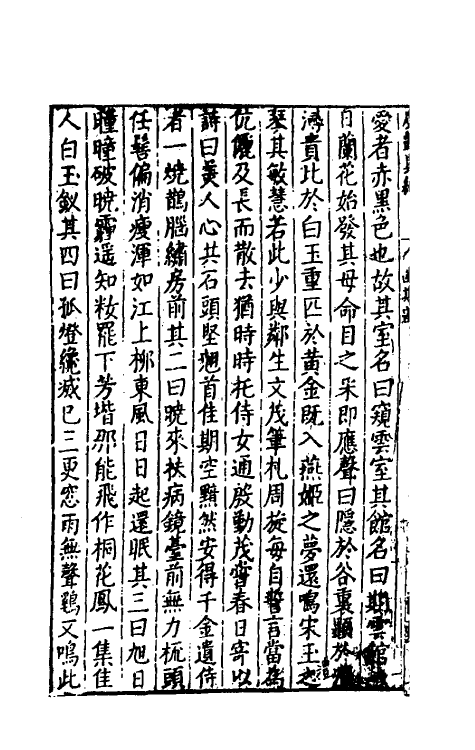 愛者赤黑色也故其室名曰窺雲室其館名曰期雲館
日蘭花始發其母命目之采即應聲曰隱於谷裏顯於
潯貴比於白玉重匹於黃金既入燕姬之夢還鳴宋玉之
琴其敏慧若此少與鄰生文茂筆札周旋每自誓言當爲
伉儷及長而散去猶時時托侍女通殷動茂嘗春日寄以
詩曰美人心共石頭堅翹首佳期空黯然安得千金遺侍
者一燒鵲腦繡房前其二曰曉來扶病鏡臺前無力梳頭
任髻偏消瘦渾如江上柳東風日日起還眠其三曰旭日
曈曈破曉霾遥知妝罷下芳堦那能飛作桐花鳳一集佳
人白玉釵其四曰孤燈纔滅已三更窓雨無聲鷄又鳴此